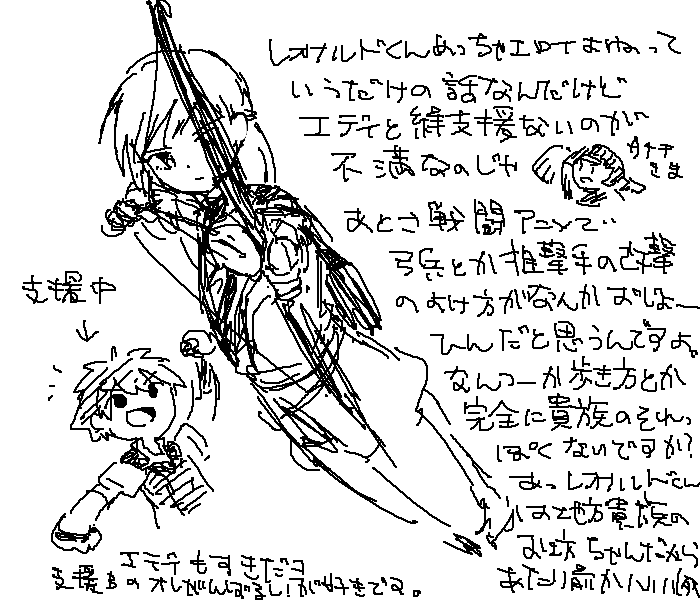 レオナルドくんめっちゃエロイよねって
いうだけの話なんだけど
エディと 支援ないのが
不満なのじゃ
あとさ戦闘アニメで…
弓兵とか狙撃手の攻撃
のよけ方がなんか
ひんだと思うんですよ。
なんつーか歩き方とか
完全に貴族のそれっ
ぽくないですか?
あっレオナルドくん
は地方貴族の
お坊ちゃんだから
あたり前かハハハ
支援中
エディもすきだヨ
支援Bの オレがんばるし!が好きです。